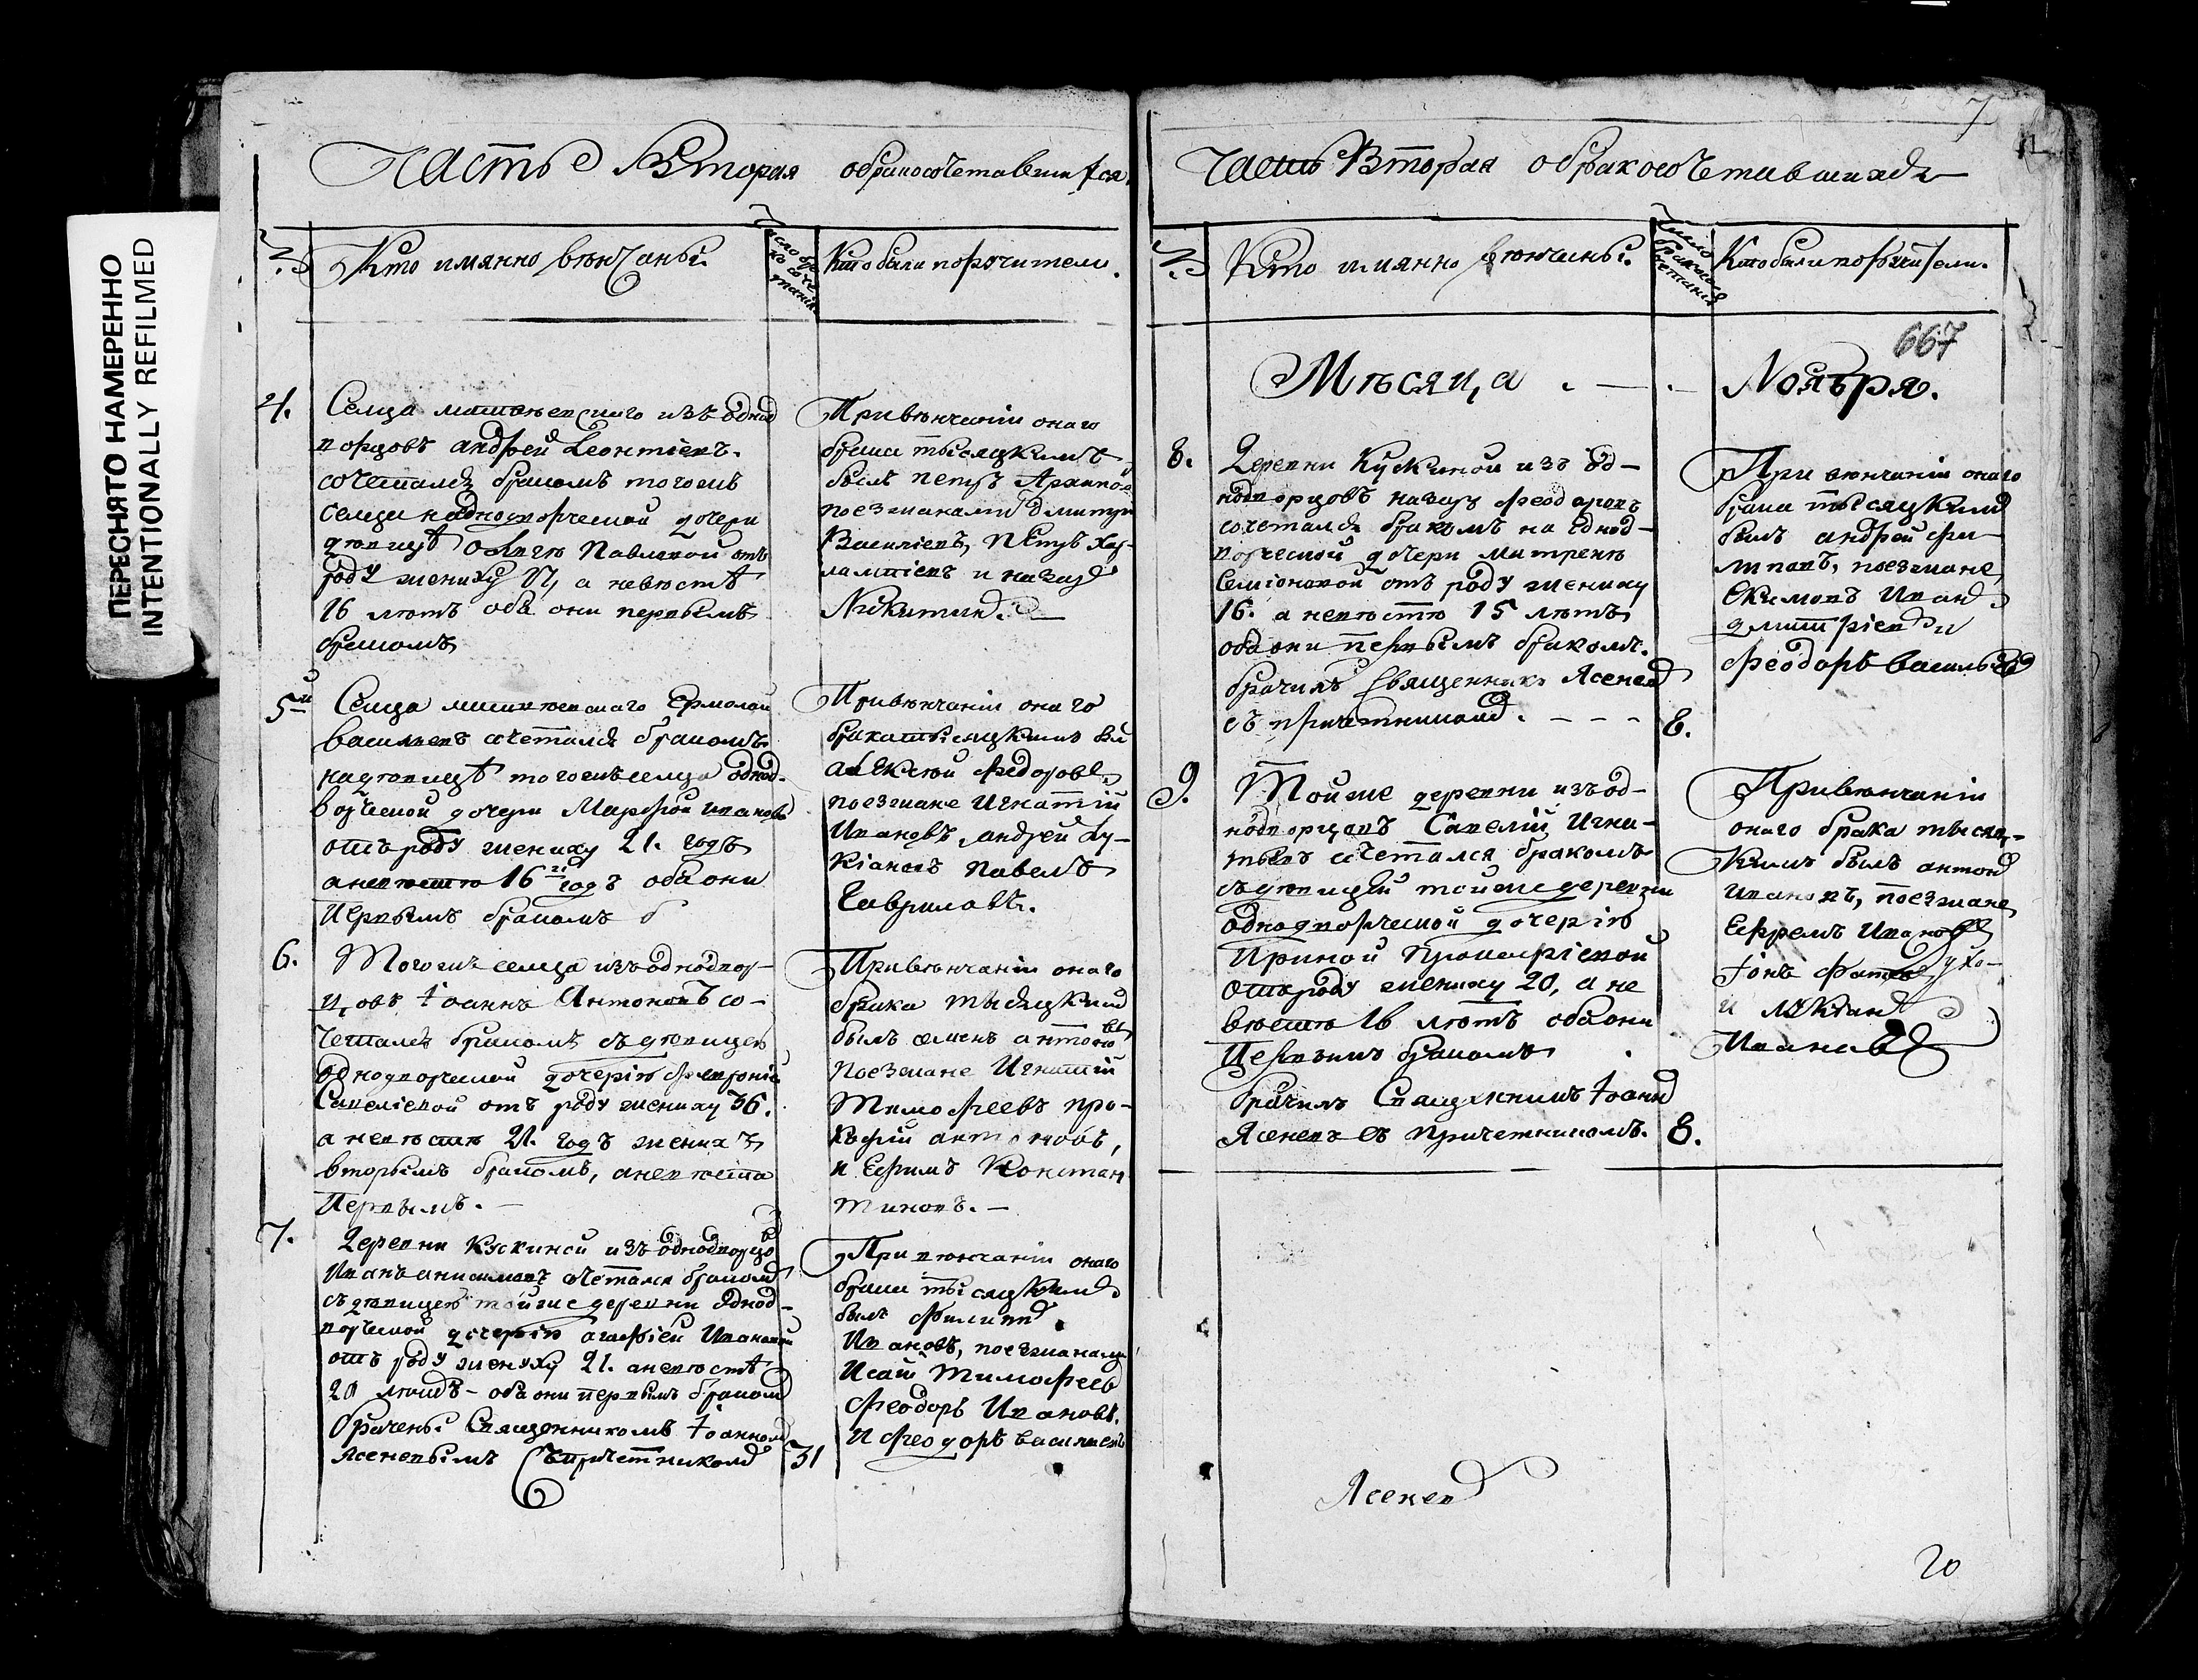 ПЕРЕСНЯТО НАМЕРЕННО
INTENTIONALLY REFILMED
Часть Вторая обракосочетавшихся
№ Кто имянно венчаны. Число бракосочетания Кто были поручители.
4. Селца из однод
ворцовъ андрей Леонтіевъ
сочетался бракомъ тогожъ
селца на однодворческой дочери
девицѣ Павловой отъ
роду жениху а невѣстѣ
16 лѣтъ оба они первымъ
бракомъ
При вѣнчаніи онаго
брака тысяцкимъ
былъ петръ Архипов
поезжанами димитри
Василіевъ, петръ Хар-
лампіевъ и назаръ
Никитинъ.
5й Селца Ермолай
василиевъ сочетался бракомъ
на девицѣ тогожъ селца однод-
ворческой дочери Марфой ивановой
отъ роду жениху 21. годъ
а невѣстѣ 16 годъ оба они
первымъ бракомъ
При вѣнчаніи онаго
брака тысяцкимъ был
алексѣй федоровъ
поезжане Игнатій
Ивановъ, андрей Лу-
кіановъ павелъ
Гавриловъ.
6. Тогожъ селца изъ однодвор-
цовъ Іоаннъ Антоновъ со-
четался бракомъ съ девицею
однодворческой дочерію
Савеліевой отъ роду жениху 36.
а невѣстѣ 21. годъ женихъ
вторымъ бракомъ, а невѣста
первымъ.
При вѣнчаніи онаго
брака тысяцкимъ
былъ семенъ антоновъ
поезжане Игнатій
Тимофеевъ про-
кофій антоновъ,
и Ефимъ Констан
тиновъ.
7. Деревни Кускиной изъ однодворцовъ
Иванъ анисимовъ сочетался бракомъ
съ девицею тойже деревни однод-
ворческой дочерію агафіей Ивановой
отъ роду жениху 21. а невѣстѣ
20 лѣтъ оба они первымъ бракомъ
брачены Священникомъ Іоанномъ
Ясеневымъ съ причетникомъ 31
При вѣнчаніи онаго
брака тысяцкимъ
былъ филипъ
Ивановъ, поезжанами
Исай Тимофеев
Феодоръ Ивановъ.
и феодоръ василиевъ
7
Часть Вторая обракосочетавшихся
№ Кто имянно венчаны. Число бракосочетания Кто были поручители.
667
Мѣсяца Ноября.
8. Деревни Кускиной изъ од-
нодворцовъ назаръ феодоровъ
сочетался бракомъ на однод-
ворческой дочери матренѣ
Семіоновой отъ роду жениху
16. а невѣстѣ 15 лѣтъ
оба они первымъ бракомъ.
брачилъ Священникъ Ясеневъ
съ причетникомъ. 8.
При вѣнчаніи онаго
брака тысяцкимъ
былъ андрей фи-
липовъ, поезжане
Екимовъ Иванъ
дмитріевъ и
феодоръ васильевъ
9. Тойже деревни изъ од-
нодворцовъ Савелій Игна-
тьевъ сочетался бракомъ
съ девицей тойже деревни
однодворческой дочерію
Ириной Прокофіевой
отъ роду жениху 20, а не
вѣстѣ 16 лѣтъ оба они
первымъ бракомъ
брачилъ Священникъ Іоаннъ
Ясеневъ съ причетникомъ. 8.
При вѣнчаніи
онаго брака тысяц-
кимъ былъ антонъ
ивановъ, поезжане
Ефремъ Ивановъ
и лукіанъ
Ивановъ
Ясеневъ
20